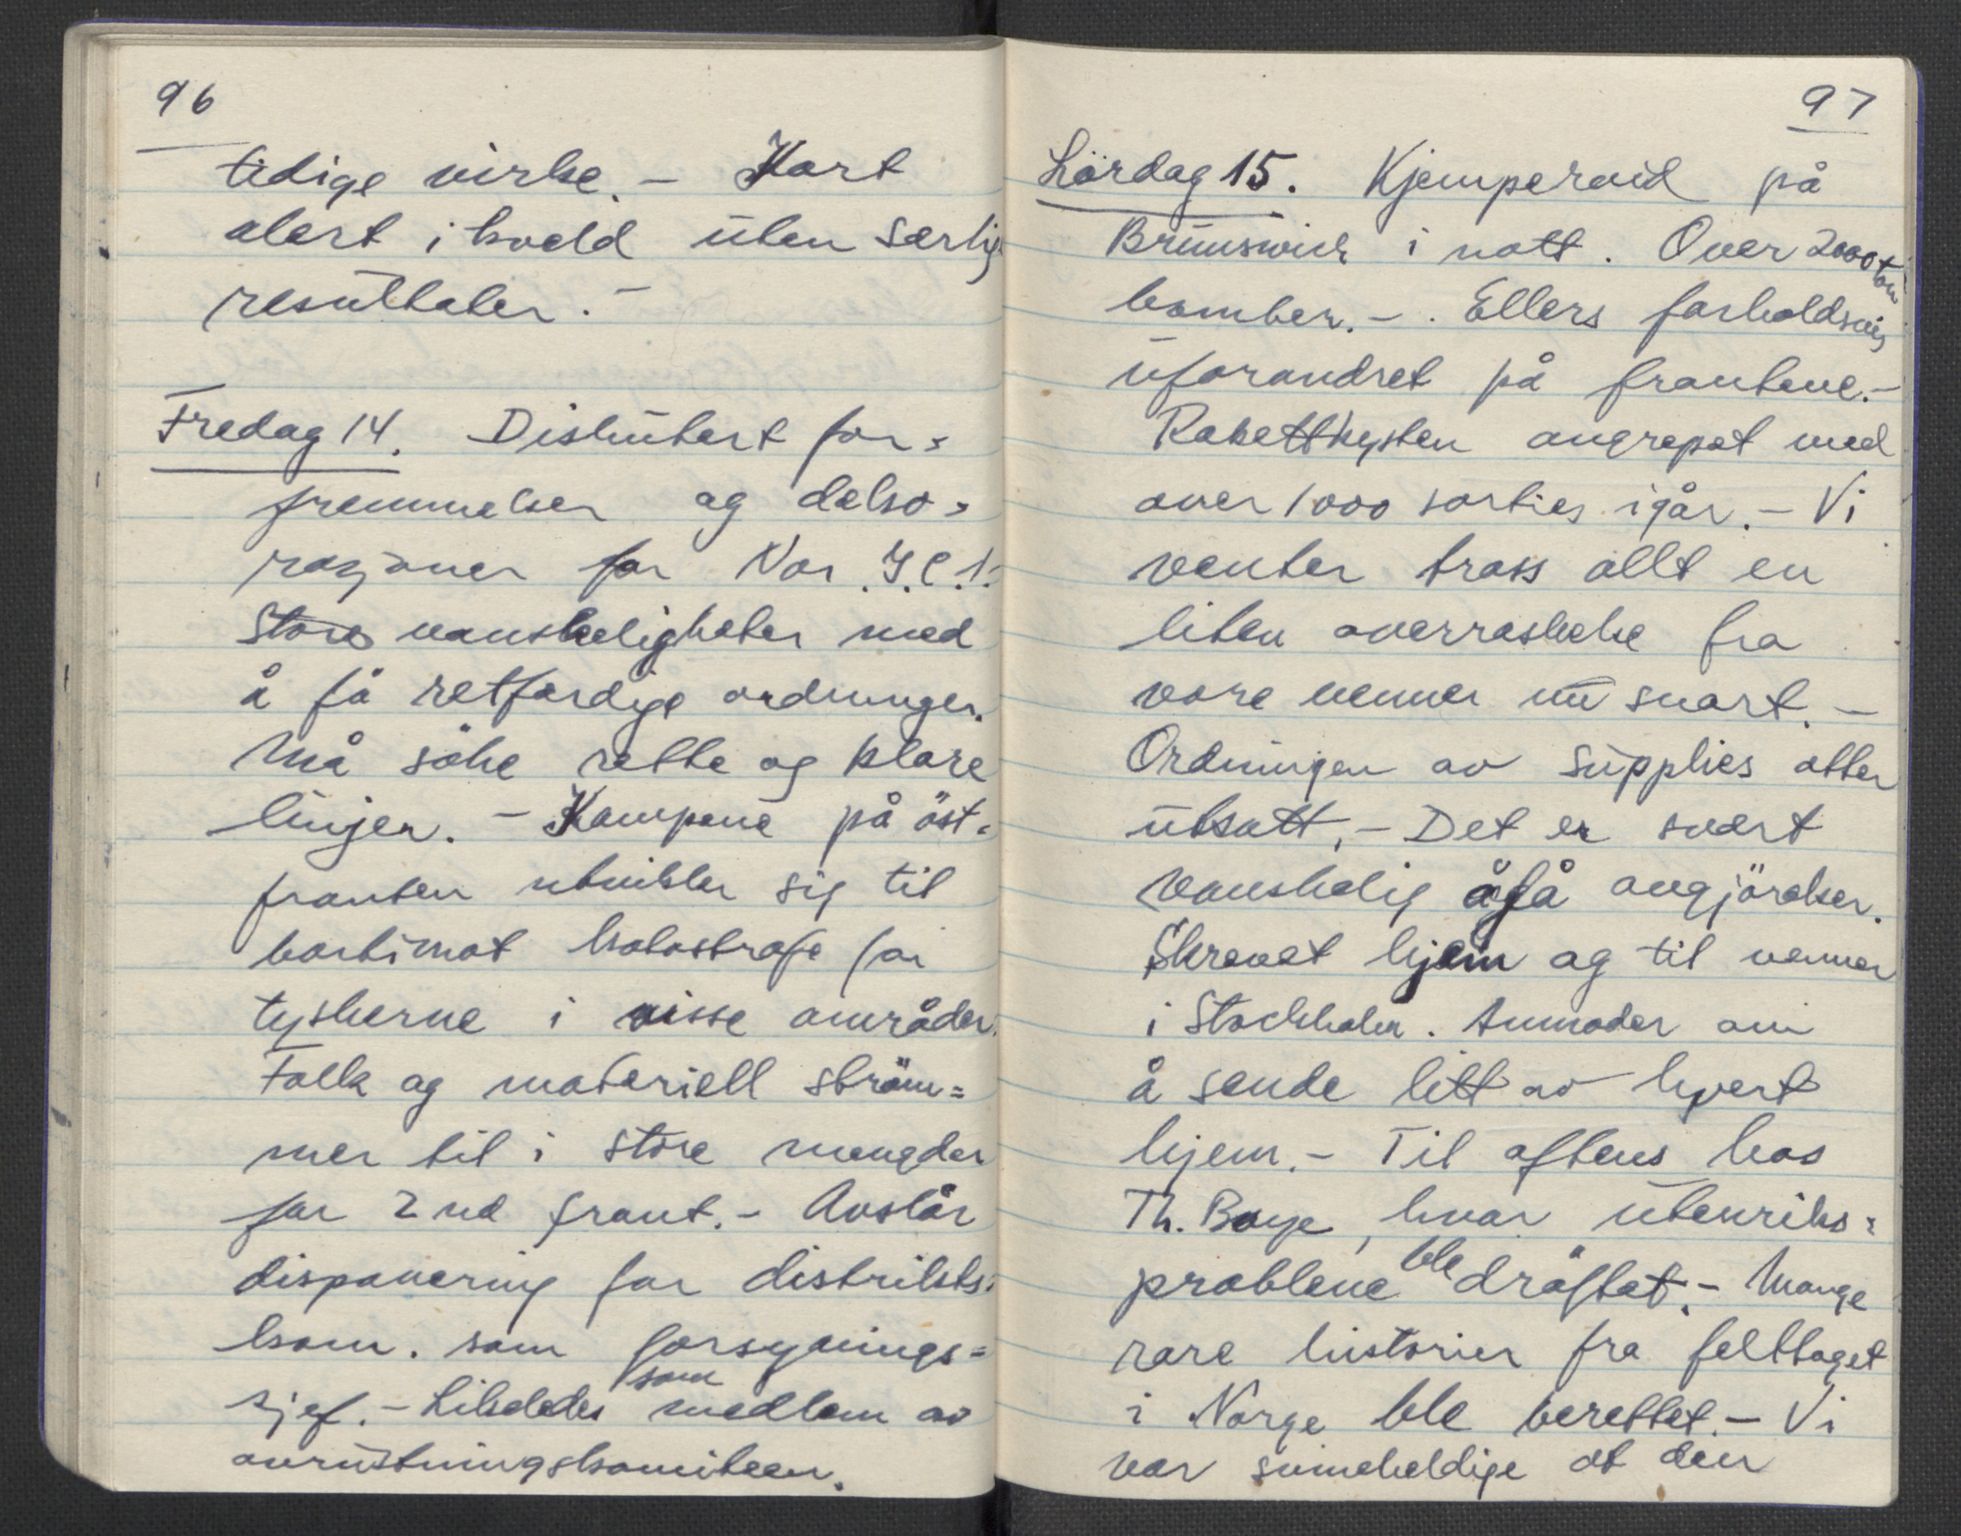 96
tidige virke. - Kort
alert i kveld uten særlig
resultater. -
Fredag 14. Diskutert for=
fremmelser og deko=
rasjoner for Nor. I.C.1.
Store vanskeligheter med
å få retferdige ordninger.
Må söke rette og klare
linjer. - Kampene på öst=
fronten utvikler sig til
bortimot katastrofe for
tyskerne i visse områder.
Folk og materiell ström=
mer til i store mengder
for 2nd front. - Avslår
disponering for distrikts=
kom. som forsynings=
sjef. - Likeledes som medlem av
avrustningskomiteen.
97
Lördag 15. Kjemperaid på
Brunswick i natt. Over 2000 tom
bomber. - . Ellers forholdsvis
uforandret på frontene. -
Rakettkysten angrepet med
over 1000 sorties igår. - Vi
venter tross allt en
liten overraskelse fra
vore venner nu snart. -
Ordningen av supplies atter
utsatt. - Det er svært
vanskelig å få avgjörelser.
Skrevet hjem og til venner
i Stockholm. Anmoder om
å sende litt av hvert
hjem. - Til aftens hos
Th. Boye, hvor utenriks=
problene ble dröftet. - Mange
rare historier fra felttoget
i Norge ble berettet. - Vi
var svineheldige at den